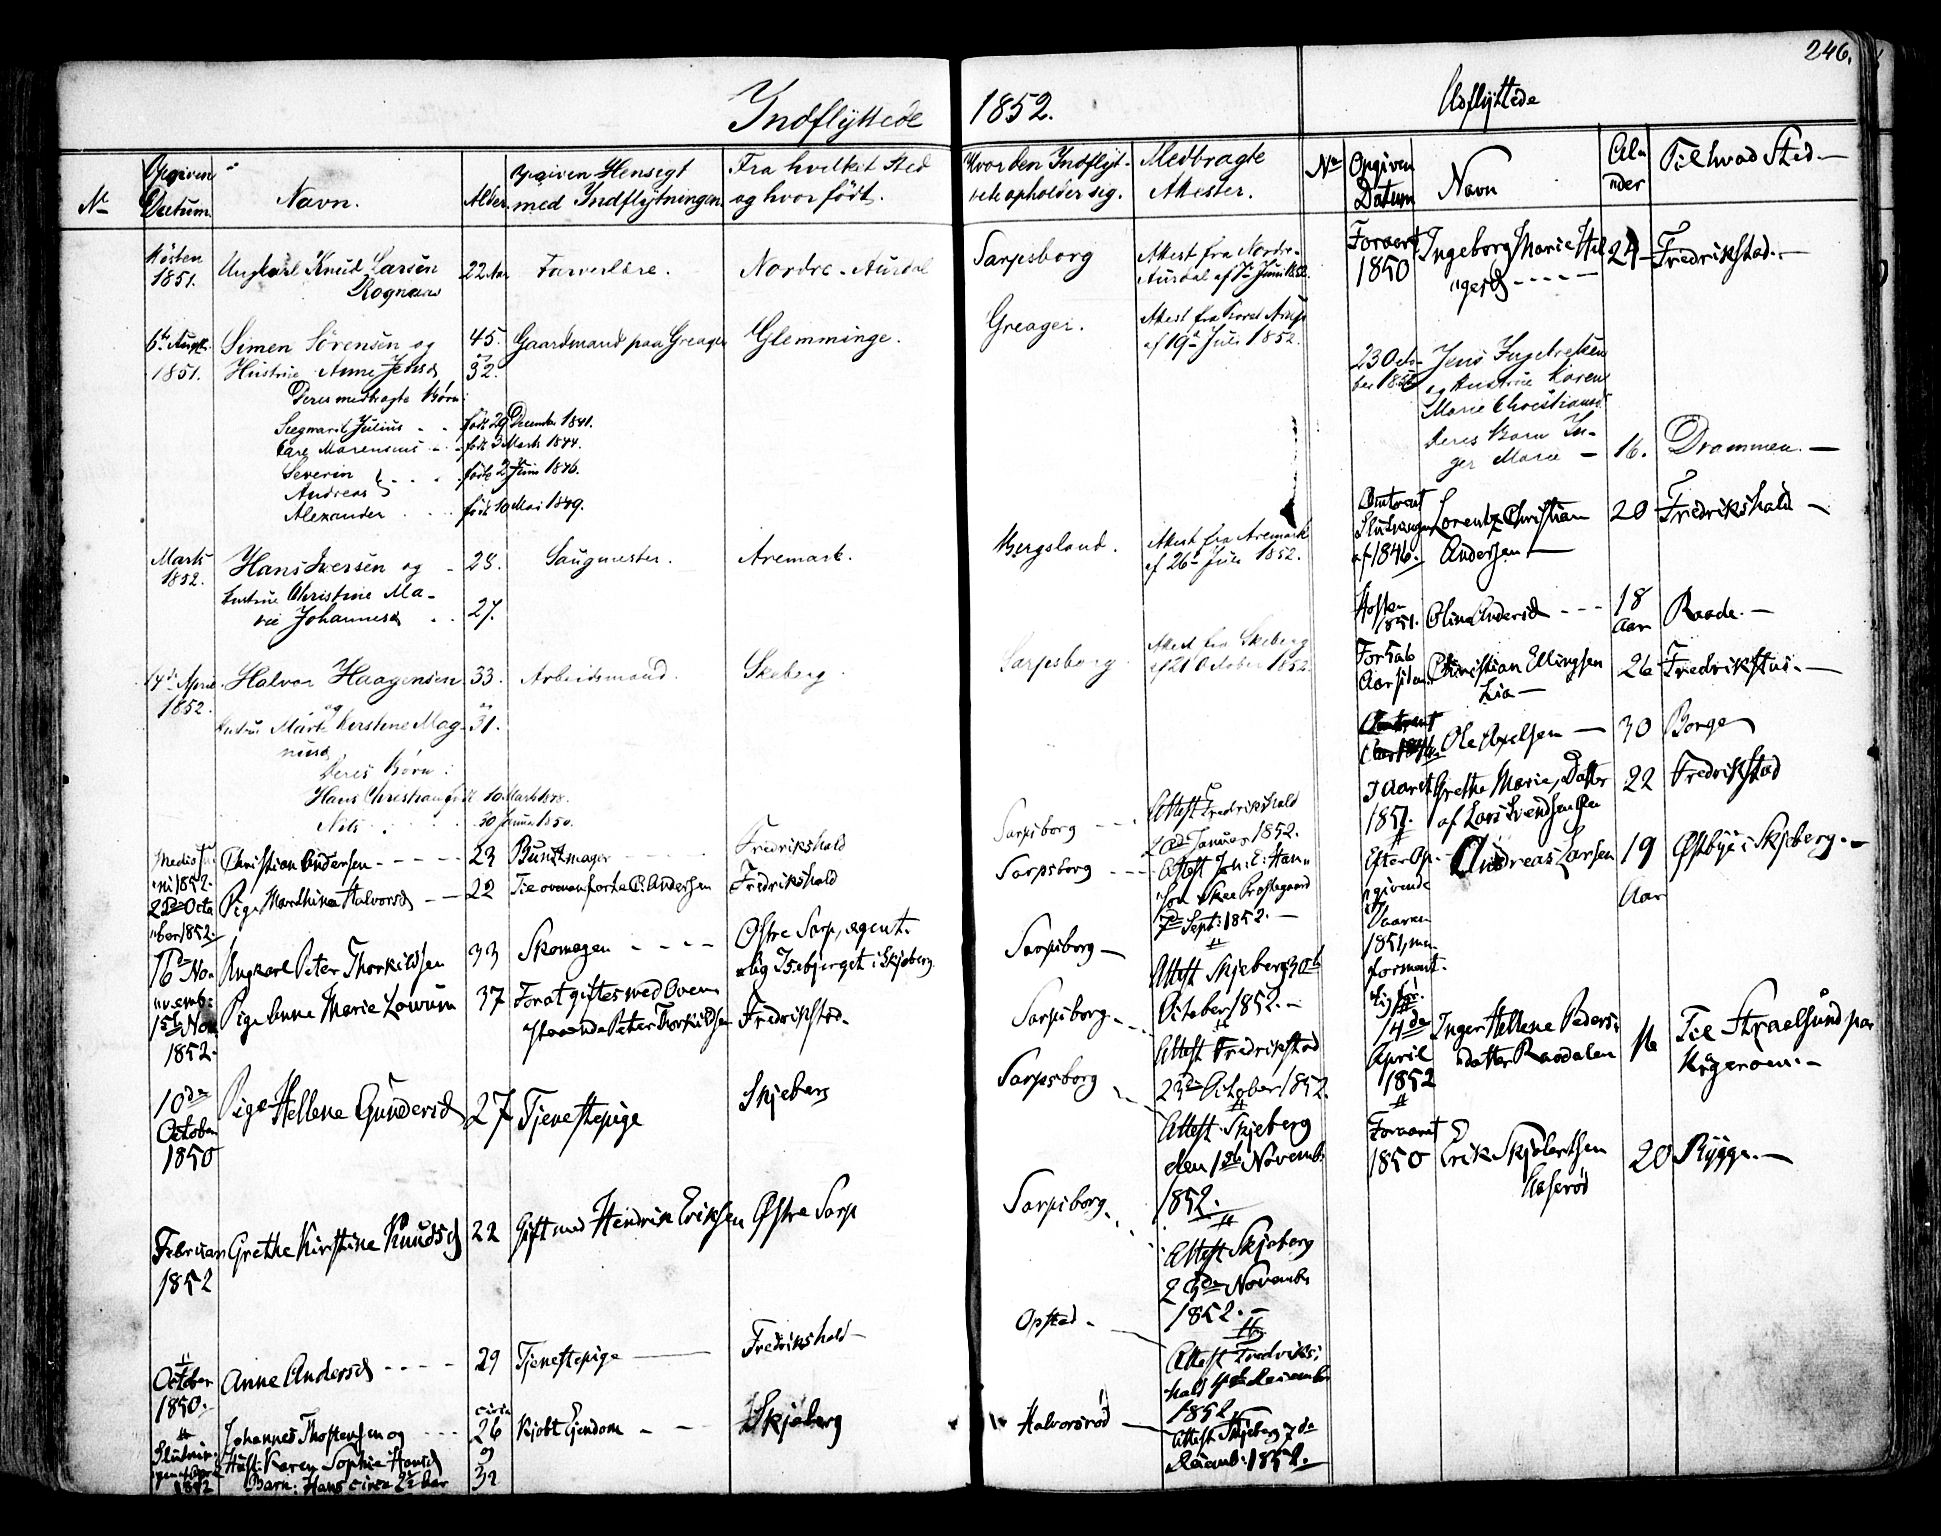 246.
Indflyttede 1852.
Udflyttede
No
Opgiven Datum
Navn.
Alder.
Opgiven Hensigt med Indflytningen
Fra hvilket Sted og hvor født.
Hvor den Indflyttede opholder sig.
Medbragte Attester.
Høsten 1851.
Ungkarl Knud Larsen
22 Aar
Farverlære.
Nordre-Aurdal
Sarpsborg
Attest fra Nordre-
Aurdal af 7de Juni 1852.
6te August 1851.
Simen Sørensen og
45.
Gaardmand paa Greager
Glemminge.
Greager.
af 19de Juli 1852.
Hustrue Anne Jensd
32.
Deres medbragte Børn:
Julius
født 29 December 1841.
Carl Marensius
født 3 Marts 1844.
Severin
født 2 Juni 1846.
Andreas
Alexander
født 10 Mai 1849.
Marts 1852.
Hans Iversen og
28.
Saugmester.
Aremark.
Bergsland.
Attest fra Aremark
af 26de Juli 1852.
Hustrue Christine Ma-
rie Johannesd
27.
14de April 1852.
Halvor Haagensen
33.
Arbeidsmand.
Skeberg.
Sarpsborg.
Attest fra Skeberg
af 21 October 1852
og
Hustru Marte Kerstine Mag-
nusd
31.
Deres Børn:
Hans Christian
Nils
Medio Ju-
ni 1852.
Christian Andersen
23
Buntmager
Fredrikshald
Sarpsborg
Attest Fredrikshald
Januar 1852.
22de Octo
ber 1852.
Pige Marthina Halvorsd
22
Tie ovenanførte C. Andersen
Fredrikshald
Sarpsborg
7de Sept: 1852.
16de No-
vemb:
Ungkarl Peter Thorkildsen
33
Skomager
Østre Sarp, egent-
lig Isebjerget i Skjeberg
Sarpsborg
Attest Skjeberg 30th
October 1852.
15de Nov
1852.
Pige Anne Marie Lowum
37
For at giftes med Oven-
staaende Peter Thorkildsen
Fredrikstad.
Sarpsborg.
Attest Fredrikstad
23de October 1852.
10de
October
1850
Pige Hellene Gundersd
27
Tjenestepige
Skjeberg
Sarpsborg
Attest Skjeberg
den 1ste Novemb:
1852.
Februar
1852
Grethe Kirstine Knudsd
22
Gift med Hendrik Eriksen
Østre Sarp
Sarpsborg.
Attest Skjeberg
23de Novemb:
1852.
October
1850.
Anne Andersd
29
Tjenestepige
Fredrikshald
Opstad.
Attest Fredriks-
hald 4de Decemb:
1852.
Johannes Thostensen og
circa 26
Kjøbt Ejendom
Skjeberg
Halvorsrød
Attest Skjeberg 7de
Decemb: 1852.
1852
Hust: Karen Sophie Hansd
og 32
Barn: Hans circa 2½ Aar
No
Opgiven Datum
Navn
Al-
der
Til hvad Sted
Foraaret 1850
Ingeborg Marie Hel-
gesd
24
Fredrikstad.
23 Octo-
ber
Jens Ingebretsen
og Hustrue Karen
Marie Christiansd
Deres Barn In-
ger Marie
16.
Drammen.
Omtrent
Slutningen
af 1846.
Lorentz Christian
Andersen
20
Fredrikshald
Høsten
1851.
Olina Andersd
18
Aar
Raade.
Forrab
Aar siden
Christian Ellingsen
Lia
26
Fredrikstad.
Ole Axelsen
30
Borge
I Aaret
1851.
Grethe Marie, Datter
af Lars Svendsen
22
Fredrikstad
Efter Op-
givende
i Vaaren
1851, men
forment-
lig før.
Andreas Larsen
19
Aar
Østbye i Skjeberg.
14de
April
1852
Inger Hellene Peders-
datter Raadalen
16
Til Straelsund paa
Krgerøen.
Foraaret
1850
Erik Skjolertsen
Haserød
20
Rygge.